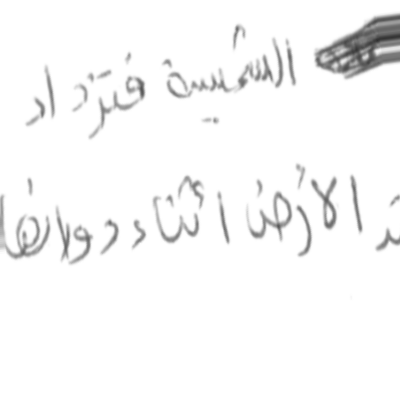 الشمسية فتزداد
الأرض أثناء دورانها